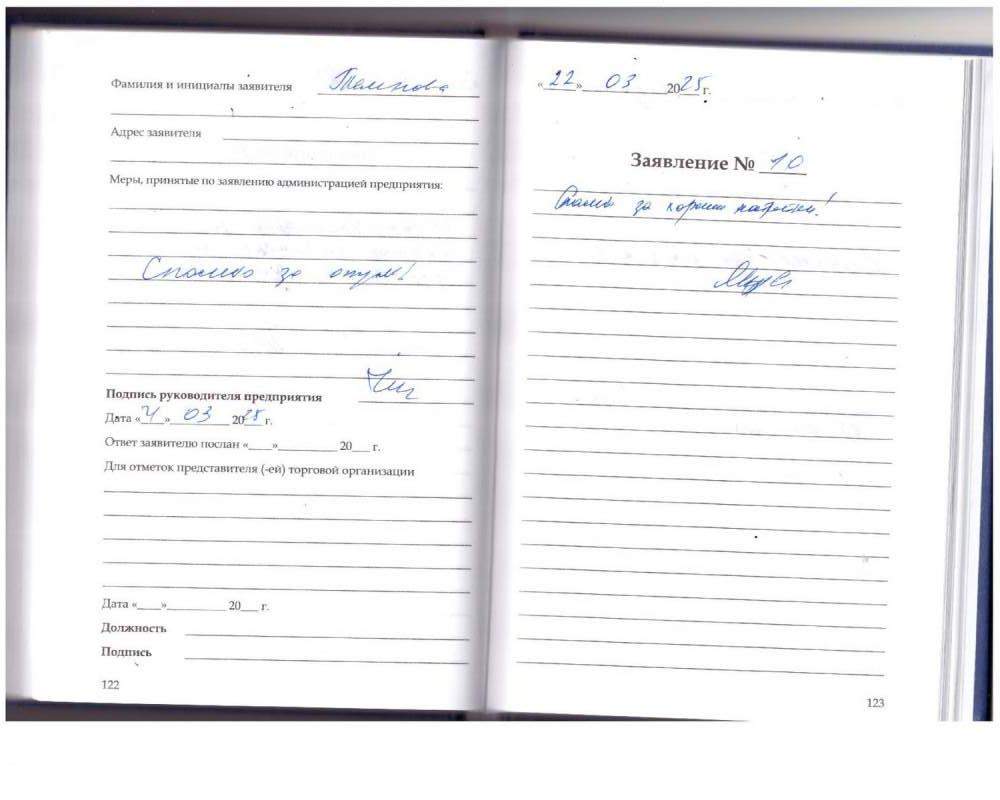 Фамилия и инициалы заявителя
Адрес заявителя
Меры, принятые по заявлению администрацией предприятия:
Спасибо за отзыв!
Подпись руководителя предприятия
Дата « » 03 2025 г.
Ответ заявителю послан «____»__________ 20___ г.
Для отметок представителя (-ей) торговой организации
Дата «____»__________ 20___ г.
Должность
Подпись
122
«22» 03 2025 г.
Заявление № 10
Спасибо за хорошие !
123